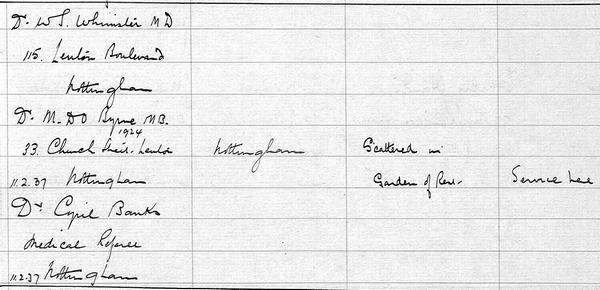 Dr. W S. Whimster M D
115. Lenton Boulevard
Nottingham
Dr. M. D O Byrne M B.
1924
33. Church Street. Lenton Nottingham Scattered in
11.2.37 Nottingham Garden of Rest. Service
Dr Cyril Banks
Medical Referee
11.2.37 Nottingham